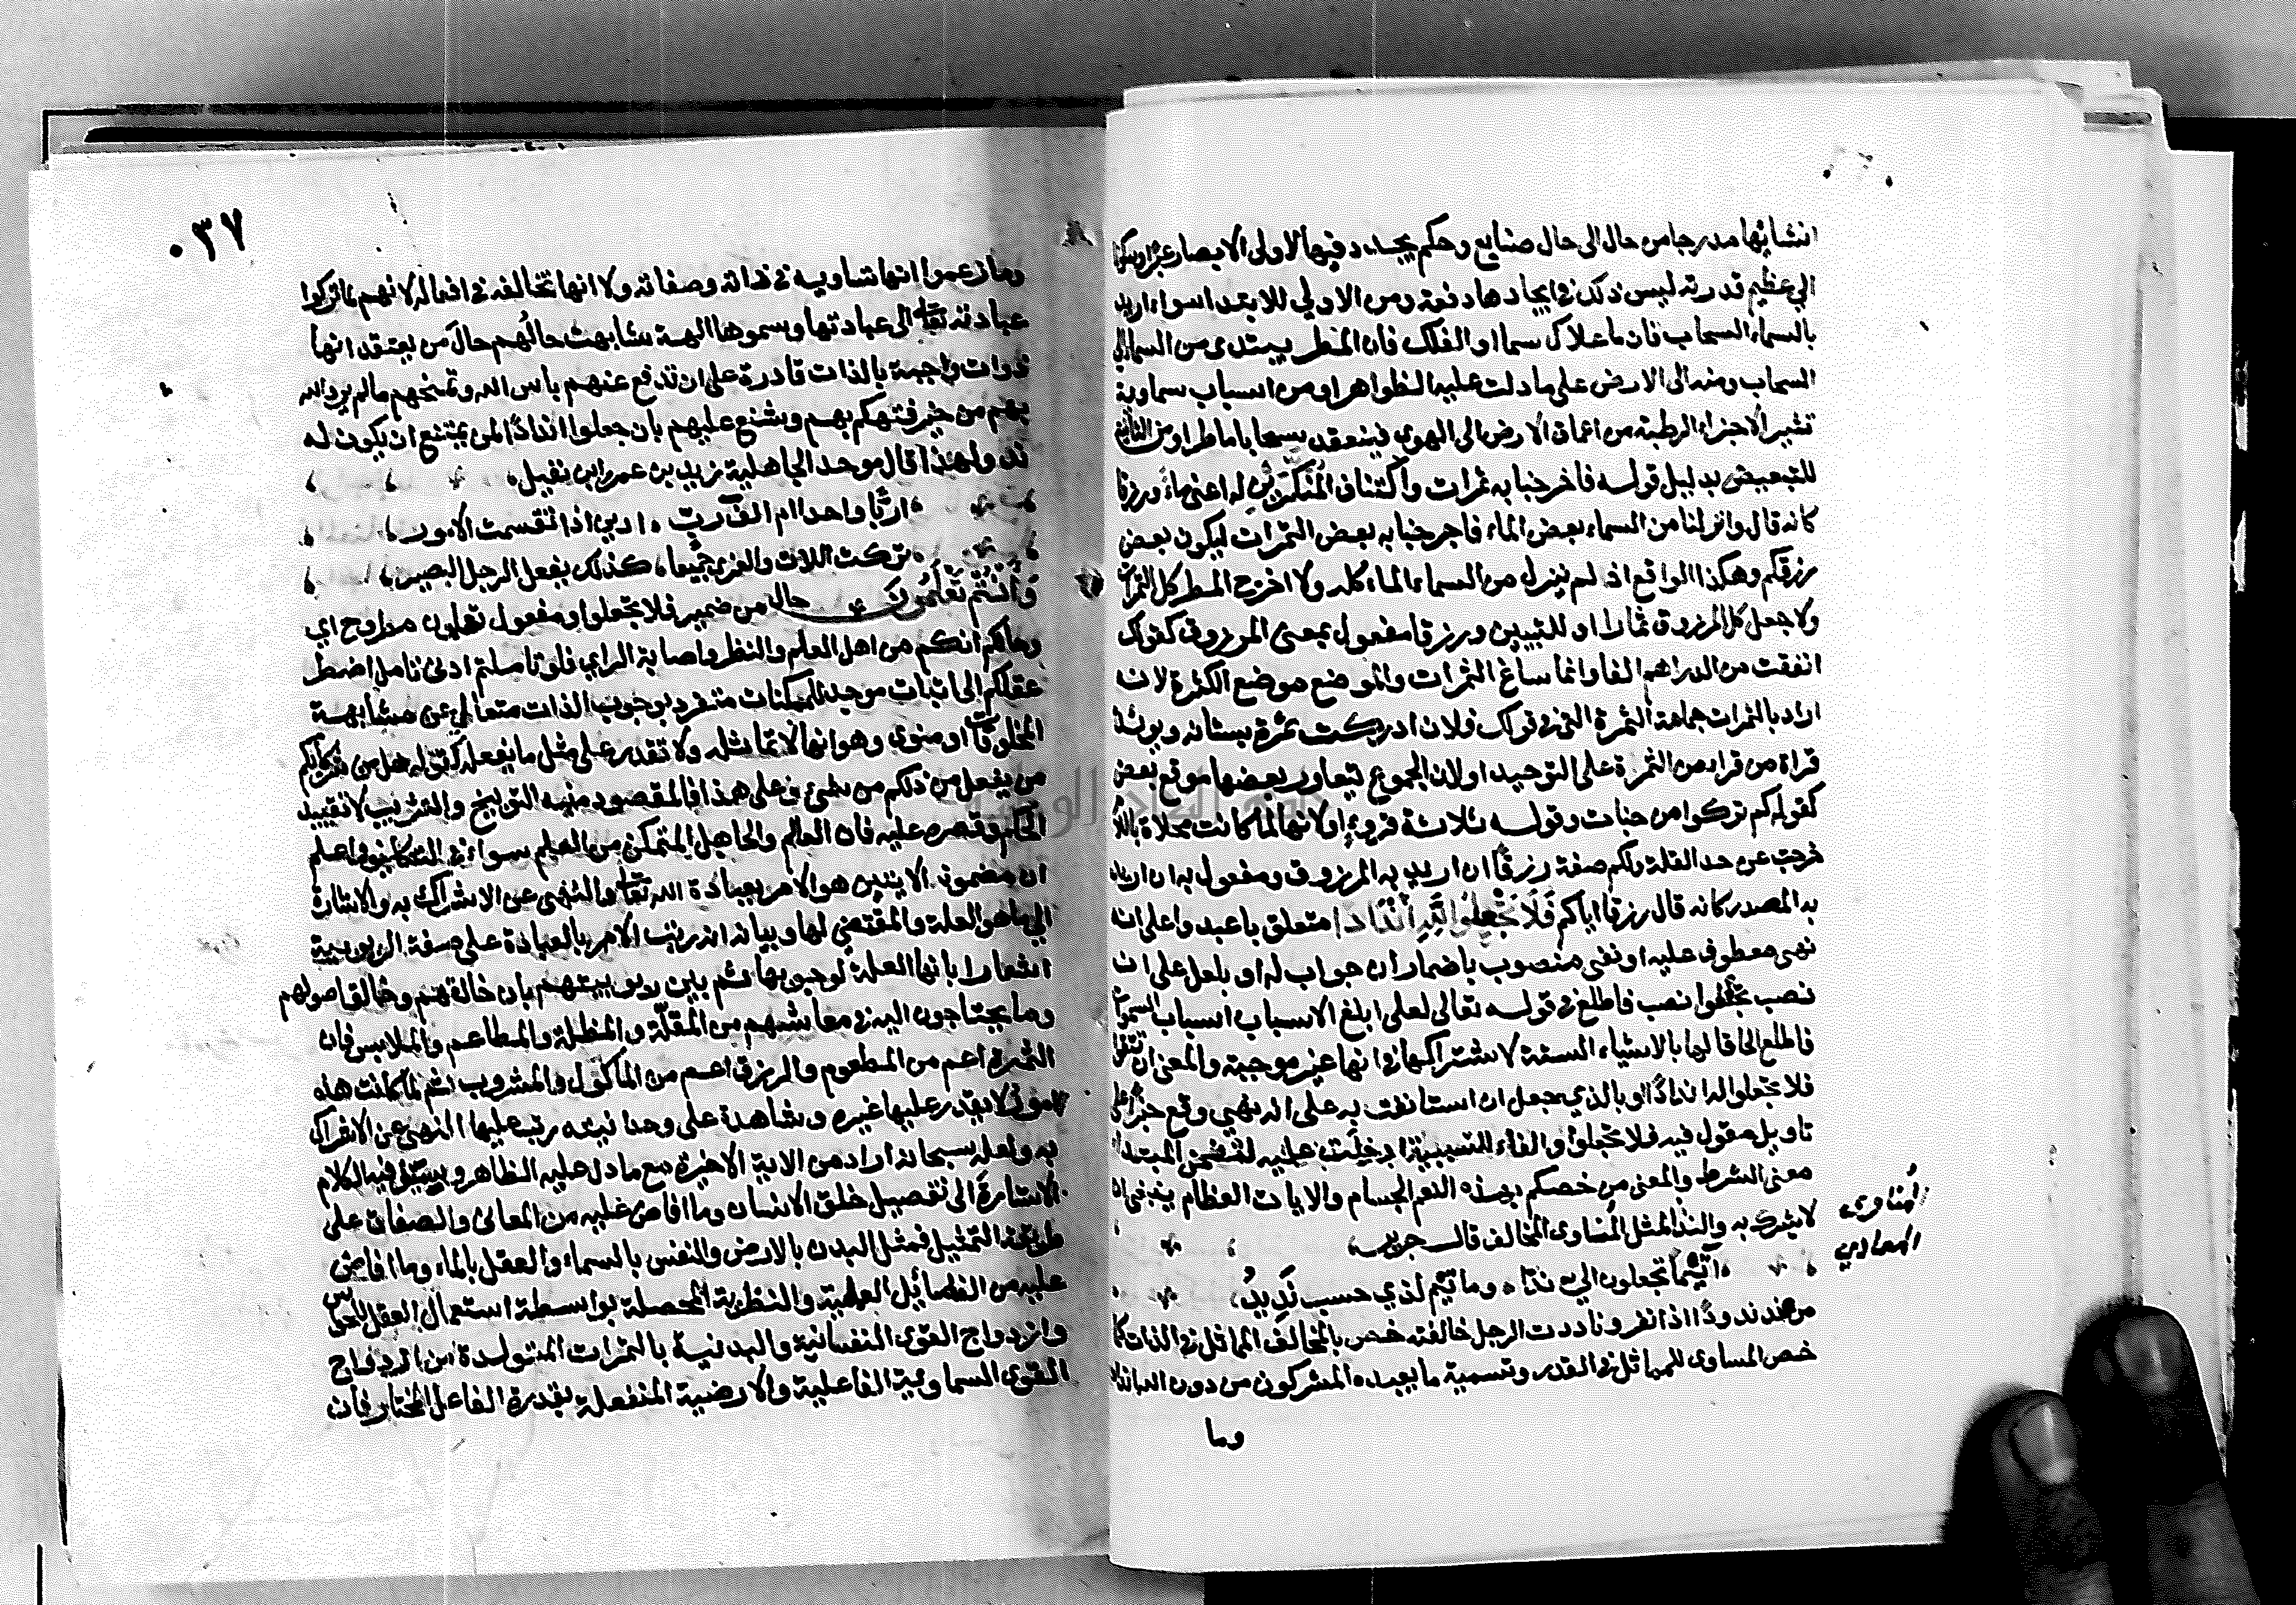 انشائها مدرجا من حال الى حال صنايع وحكم يجدد فيها لاولى الابصار عبرا وسكونا
الي عظيم قدرته ليس ذلك في ايجادها دفعة ومن الاولي للابتدا سواء اريد
بالسماء السحاب فان ما علاك سما او الفلك فان المطر يبتدى من السماء الى
السحاب ومنه الى الارض على ما دلت عليه الظواهر او من اسباب سماوية
تثير الاجزاء الرطبة من اعماق الارض الى الهوى فينعقد سحابا ماطرا ومن الثانية
للتبعيض بدليل قوله فاخرجنا به ثمرات واكتناف المُنَكَّرَيْنِ له اعنى ماء ورزقا
كانه قال وانزلنا من السماء بعض الماء فاخرجنا به بعض الثمرات ليكون بعض
رزقكم وهكذا الواقع اذ لم ينزل من السماء الماء كله ولا اخرج المطر كل الثمرات
ولا جعل كل المرزوق ثمارا او للتبيين ورزقا مفعول بمعنى المرزوق كقولك
انفقت من الدراهم الفا وانما ساغ الثمرات والموضع موضع الكثرة لانه
اراد بالثمرات جماعة الثمرة التى في قولك فلان ادركت ثمرة بستانه ويويده
قراة من قرا من الثمرة على التوحيد او لان الجموع يتعاور بعضها موقع بعض
كقوله كم تركوا من جنات وقوله ثلاثة قروء او لانها لما كانت محلاة باللام
خرجت عن حد القلة ولكم صفة رزقا ان اريد به المرزوق ومفعول به ان اريد
به المصدر كانه قال رزقا اياكم فَلَا تَجْعَلُوا لِلَّهِ أَنْدَادًا متعلق باعبدوا على انه
نهى معطوف عليه او نفى منصوب باضمار ان جواب له او بلعل على ان
نصب تجعلوا نصب فاطلع في قوله تعالى لعلى ابلغ الاسباب اسباب السموات
فاطلع الحاقا لها بالاشياء الستة لاشتراكها في انها غير موجبة والمعنى ان تتقوا
فلا تجعلوا لله اندادًا او بالذي جعل ان استانفت به على انه نهي وقع خبرًا على
تاويل مقول فيه فلا تجعلوا والفاء للسببية ادخلت عليه لتضمن المبتدا
معنى الشرط والمعنى من خصكم بهذه النعم الجسام والايات العظام ينبغى ان
لا يشرك به والند المثل المُناوى المخالف قال جرير
اتَيْمًا تجعلون الي ندا ٥ وما تيم لذي حسب نَدِيدُ
من ند ندودًا اذا نفر وناددت الرجل خالفته خص بالمخالف المماثل في الذات كما
خص المساوى للمماثل في القدر وتسمية ما يعبده المشركون من دون الله اندادا
وما
المُناوى
المعادي
٠٣٧
وما زعموا انها تساويه في ذاته وصفاته ولا انها تخالفه في افعاله لانهم لما تركوا
عبادته تعالى الى عبادتها وسموها الهة شابهت حالُهم حالَ من يعتقد انها
ذوات واجبة بالذات قادرة على ان تدفع عنهم باس الله وتمنحهم ما لم يرد الله
بهم من خير فتهكم بهم وشنع عليهم بان جعلوا اندادًا لمن يمتنع ان يكون له
ند ولهذا قال موحد الجاهلية زيد بن عمرو بن نفيل
اربًّا واحدا ام الف ربّ ٥ ادين اذا تقسمت الامور
تركت اللات والعزى جميعا ٥ كذلك يفعل الرجل البصير
وَأَنْتُمْ تَعْلَمُونَ حال من ضمير فلا تجعلوا ومفعول تعلمون مطروح اي
وحالكم انكم من اهل العلم والنظر واصابة الراي فلو تاملتم ادنى تامل اضطر
عقلكم الى اثبات موجد للممكنات متفرد بوجوب الذات متعالي عن مشابهة
المخلوقات او منوي وهو انها لا تماثله ولا تقدر على مثل ما يفعله كقوله هل من شركائكم
من يفعل من ذلكم من شىء فعلى هذا فالمقصود منه التوبيخ والتثريب لا تقييد
الحكم وقصره عليه فان العالم والجاهل المتمكن من العلم سواء في التكليف واعلم
ان مضمون الايتين هو الامر بعبادة الله تعالى والنهى عن الاشراك به والاشارة
الي ما هو العلة والمقتضي لها وبيانه انه رتب الامر بالعبادة على صفة الربوبية
اشعارا بانها العلة لوجوبها ثم بين ربوبيتهم بان خالقهم وخالق اصولهم
وما يحتاجون اليه في معاشهم من المقلّة والمظلة والمطاعم والملابس فان
الثمرة اعم من المطعوم والرزق اعم من الماكول والمشروب ثم لما كانت هذه
امورًا لا يقدر عليها غيره وشاهدة على وحدانيته رتب عليها النهى عن الاشراك
به ولعله سبحانه اراد من الاية الاخيرة مع ما دل عليه الظاهر وسيق فيه الكلام
الاشارةَ الى تفصيل خلق الانسان وما افاض عليه من المعانى والصفات على
طريقة التمثيل فمثل البدن بالارض والنفس بالسماء والعقل بالماء وما افاض
عليه من الفضائل العلمية والنظرية المحصلة بواسطة استعمال العقل للحواس
وازدواج القوى النفسانية والبدنية بالثمرات المتولدة من ازدواج
القوى السماوية الفاعلية والارضية المنفعلة بقدرة الفاعل المختار فان